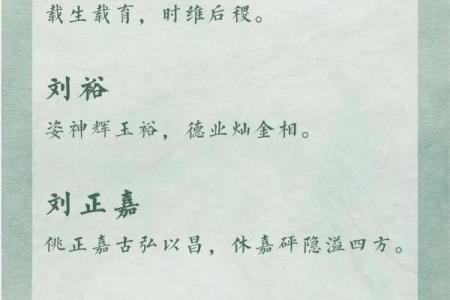 载生载育，时维后稷。
刘裕
姿神辉玉裕，德业灿金相。
刘正嘉
佻正嘉古弘以昌，休嘉砰隐溢四方。